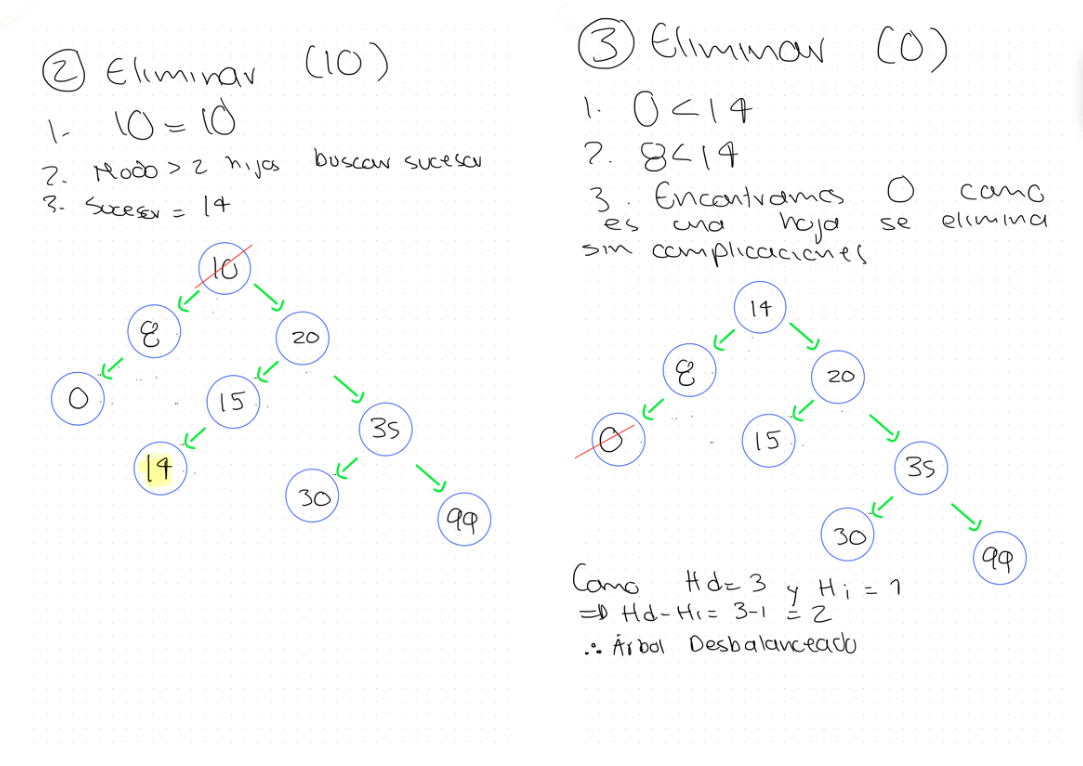 ② Eliminar (10)
1- 10 = 10
2. Nodo > 2 hijos buscar sucesor
3. Sucesor = 14
10
8
20
0
15
35
14
30
99
③ Eliminar (0)
1. 0 < 14
2. 8 < 14
3. Encontramos 0 como
es una hoja se elimina
sin complicaciones
14
8
20
0
15
35
30
99
Como Hd = 3 y Hi = 1
⇒ Hd - Hi = 3-1 = 2
∴ Árbol Desbalanceado